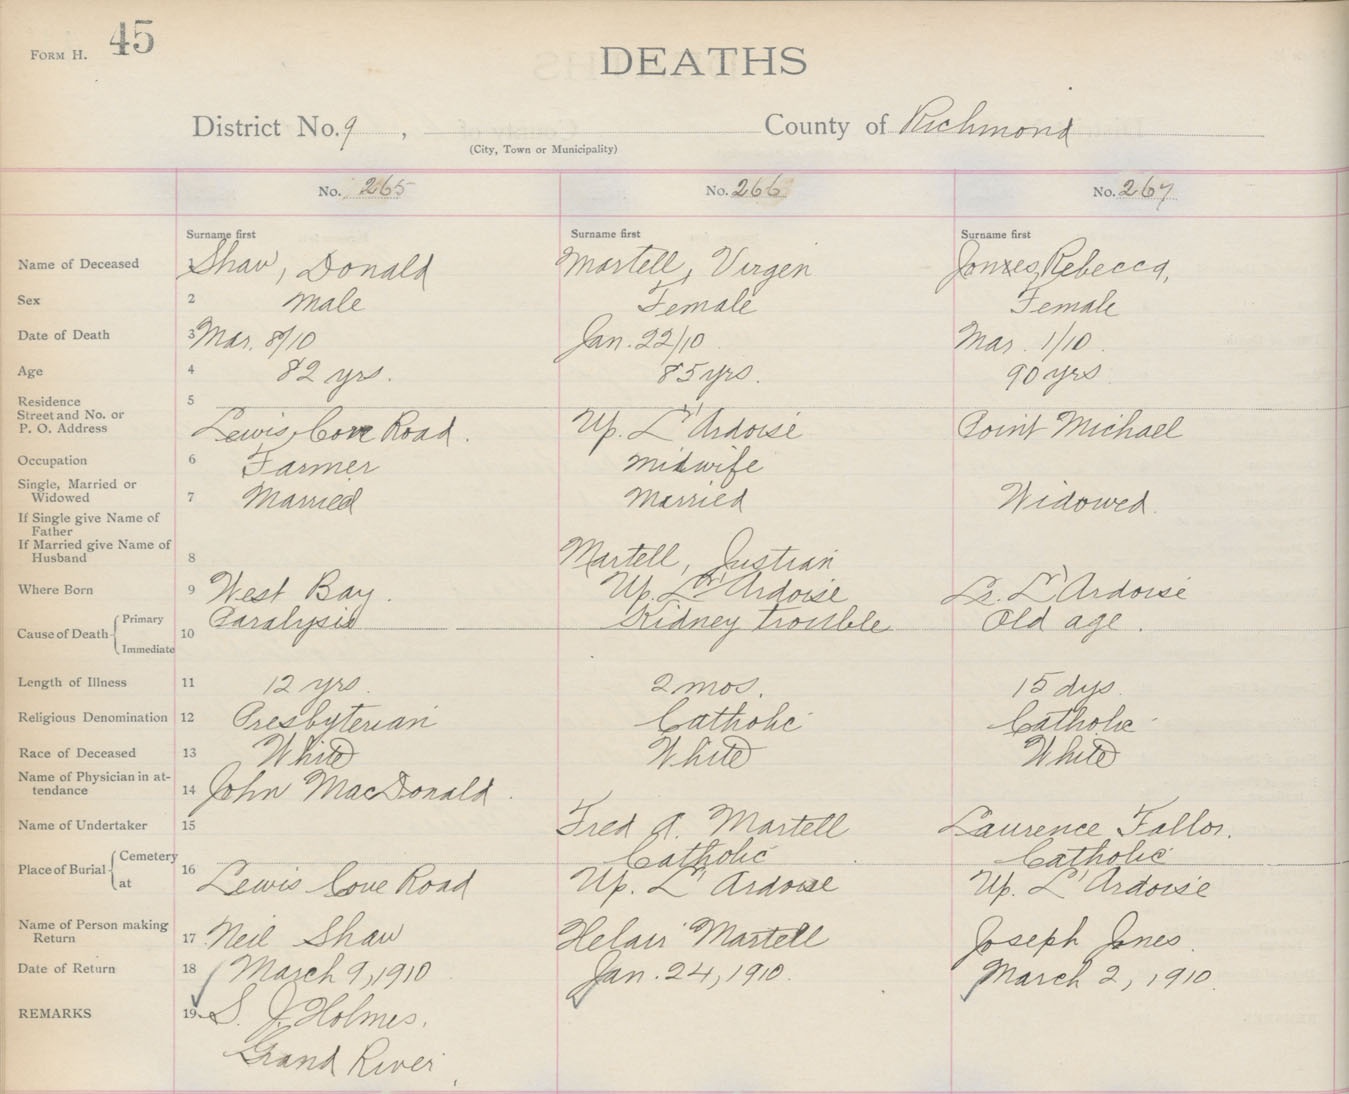 FORM H. 45
DEATHS
District No. 9 , County of Richmond
(City, Town or Municipality)
No. 265 No. 266 No. 267
Surname first Surname first Surname first
Name of Deceased 1 Shaw, Donald Martell, Virgen Jones, Rebecca,
Sex 2 Male Female Female
Date of Death 3 Mar. 8/10 Jan. 22/10 Mar. 1/10
Age 4 82 yrs. 85 yrs. 90 yrs
Residence 5
Street and No. or
P. O. Address Lewis Cove Road. Up. L'Ardoise Point Michael
Occupation 6 Farmer Midwife
Single, Married or
Widowed 7 Married Married Widowed.
If Single give Name of
Father
If Married give Name of
Husband 8 Martell, Justian
Where Born 9 West Bay. Up. L'Ardoise Lr. L'Ardoise
Cause of Death Primary Paralysis Kidney trouble Old age.
10
Immediate
Length of Illness 11 12 yrs. 2 mos. 15 dys
Religious Denomination 12 Presbyterian Catholic Catholic
Race of Deceased 13 White White White
Name of Physician in at-
tendance 14 John MacDonald.
Name of Undertaker 15 Fred A. Martell Laurence Fallor.
Place of Burial Cemetery Catholic Catholic
at 16 Lewis Cove Road Up. L'Ardoise Up. L'Ardoise
Name of Person making
Return 17 Neil Shaw Helair Martell Joseph Jones.
Date of Return 18 March 9, 1910 Jan. 24, 1910. March 2, 1910.
REMARKS 19 S. J. Holmes.
Grand River.